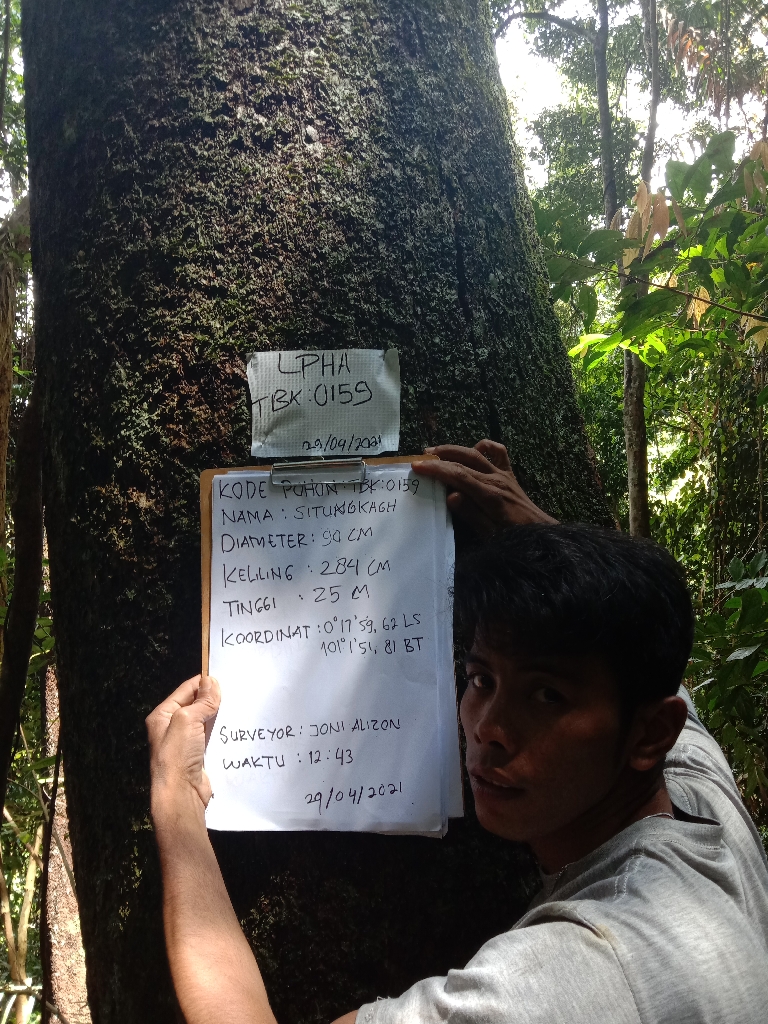 LPHA
TBK:0159
29/04/2021
KODE POHON: TBK:0159
NAMA : SITUNGKAGH
DIAMETER: 90 CM
KELILING : 284 CM
TINGGI : 25 M
KOORDINAT : 0°17'59, 62 LS
101°1'51, 81 BT
SURVEYOR: JONI ALIZON
WAKTU : 12:43
29/04/2021